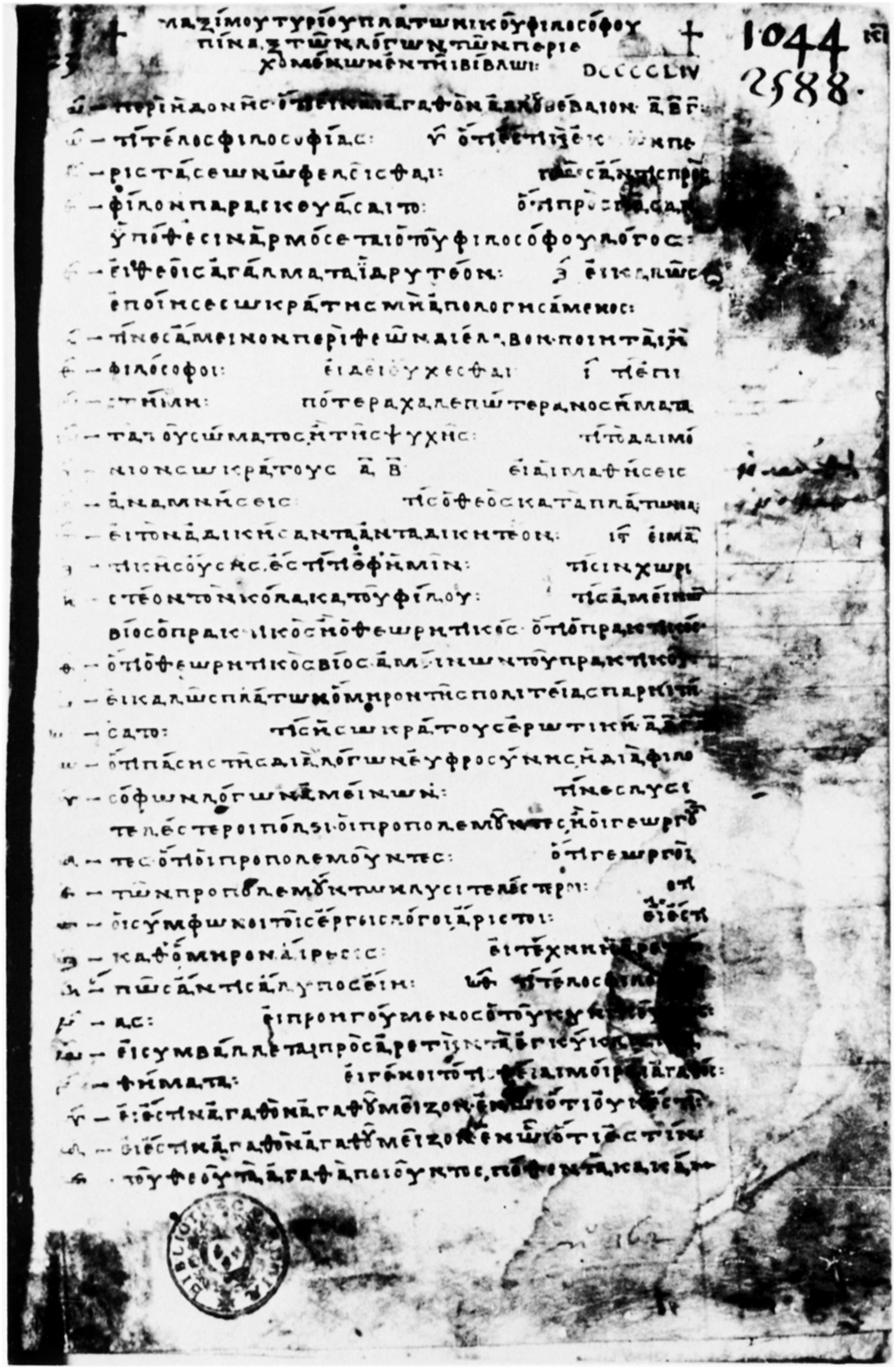 ΜΑΞΙΜΟΥ ΤΥΡΙΟΥ ΠΛΑΤΩΝΙΚΟΥ ΦΙΛΟΣΟΦΟΥ
ΠΙΝΑΞ ΤΩΝ ΛΟΓΩΝ ΤΩΝ ΠΕΡΙΕ
ΧΟΜΕΝΩΝ ΕΝ ΤΗΙ ΒΙΒΛΩΙ:
DCCCCLIV
1044
2588.
περὶ ἡδονῆς· ὅτι εἰ καὶ ἀγαθὸν ἀλλ' οὐ βέβαιον· α β γ
τί τέλος φιλοσοφίας:
ρίστασεων ὠφελεῖσθαι: πῶς ἄν τις πρὸς
φίλον παρασκευάσαιτο: ὅτι πρὸς πᾶσαν
ὑπόθεσιν ἁρμόσεται ὁ τοῦ φιλοσόφου λόγος:
εἰ θεοῖς ἀγάλματα ἱδρυτέον: εἰ καλῶς
ἐποίησε σωκράτης μὴ ἀπολογησάμενος:
τίνες ἄμεινον περὶ θεῶν διέλαβον· ποιηταὶ ἢ
φιλόσοφοι: εἰ δεῖ εὔχεσθαι τί ἐπι
στήμη: πότερα χαλεπώτερα νοσήματα
τὰ τοῦ σώματος ἢ τῆς ψυχῆς: τί τὸ δαιμό
νιον σωκράτους α β εἰ αἱ μαθήσεις
ἀναμνήσεις: τίς ὁ θεὸς κατὰ πλάτωνα:
εἰ τὸν ἀδικήσαντα ἀνταδικητέον: εἰ μαν
τικῆς οὔσης, ἔστι τι ἐφ' ἡμῖν: τίσιν χωρι
στέον τὸν κόλακα τοῦ φίλου: τίς ἀμείνων
βίος ὁ πρακτικὸς ἢ ὁ θεωρητικός· ὅτι ὁ πρακτικός
ὅτι ὁ θεωρητικὸς βίος ἀμείνων τοῦ πρακτικοῦ:
εἰ καλῶς πλάτων ὅμηρον τῆς πολιτείας παρῃτή
σατο: τίς ἡ σωκράτους ἐρωτική· α β γ δ
ὅτι πάσης τῆς διὰ λόγων εὐφροσύνης ἡ διὰ φιλο
σόφων λόγων ἀμείνων: τίνες λυσι
τελέστεροι πόλει· οἱ προπολεμοῦντες ἢ οἱ γεωργοῦν
τες ὅτι οἱ προπολεμοῦντες: ὅτι γεωργοὶ
τῶν προπολεμούντων λυσιτελέστεροι: ὅτι
οἱ σύμφωνοι τοῖς ἔργοις λόγοι ἄριστοι: εἰ ἔστι
καθ' ὅμηρον αἵρεσις: εἰ τέχνη ἡ ἀρετή
πῶς ἄν τις ἄλυπος εἴη: τί τέλος φιλοσοφί
ας: εἰ προηγούμενος ὁ τοῦ κυνικοῦ βίος:
εἰ συμβάλλεται πρὸς ἀρετὴν τὰ ἐγκύκλια μα
θήματα: εἰ γένοιτό τις θείαι μοίραι ἀγαθός:
εἰ ἔστιν ἀγαθὸν ἀγαθοῦ μεῖζον· ἐν ὧι ὅτι οὐκ ἔστιν
εἰ ἔστιν ἀγαθὸν ἀγαθοῦ μεῖζον· ἐν ὧι ὅτι ἔστιν:
τοῦ θεοῦ τὰ ἀγαθὰ ποιοῦντος, πόθεν τὰ κακά: